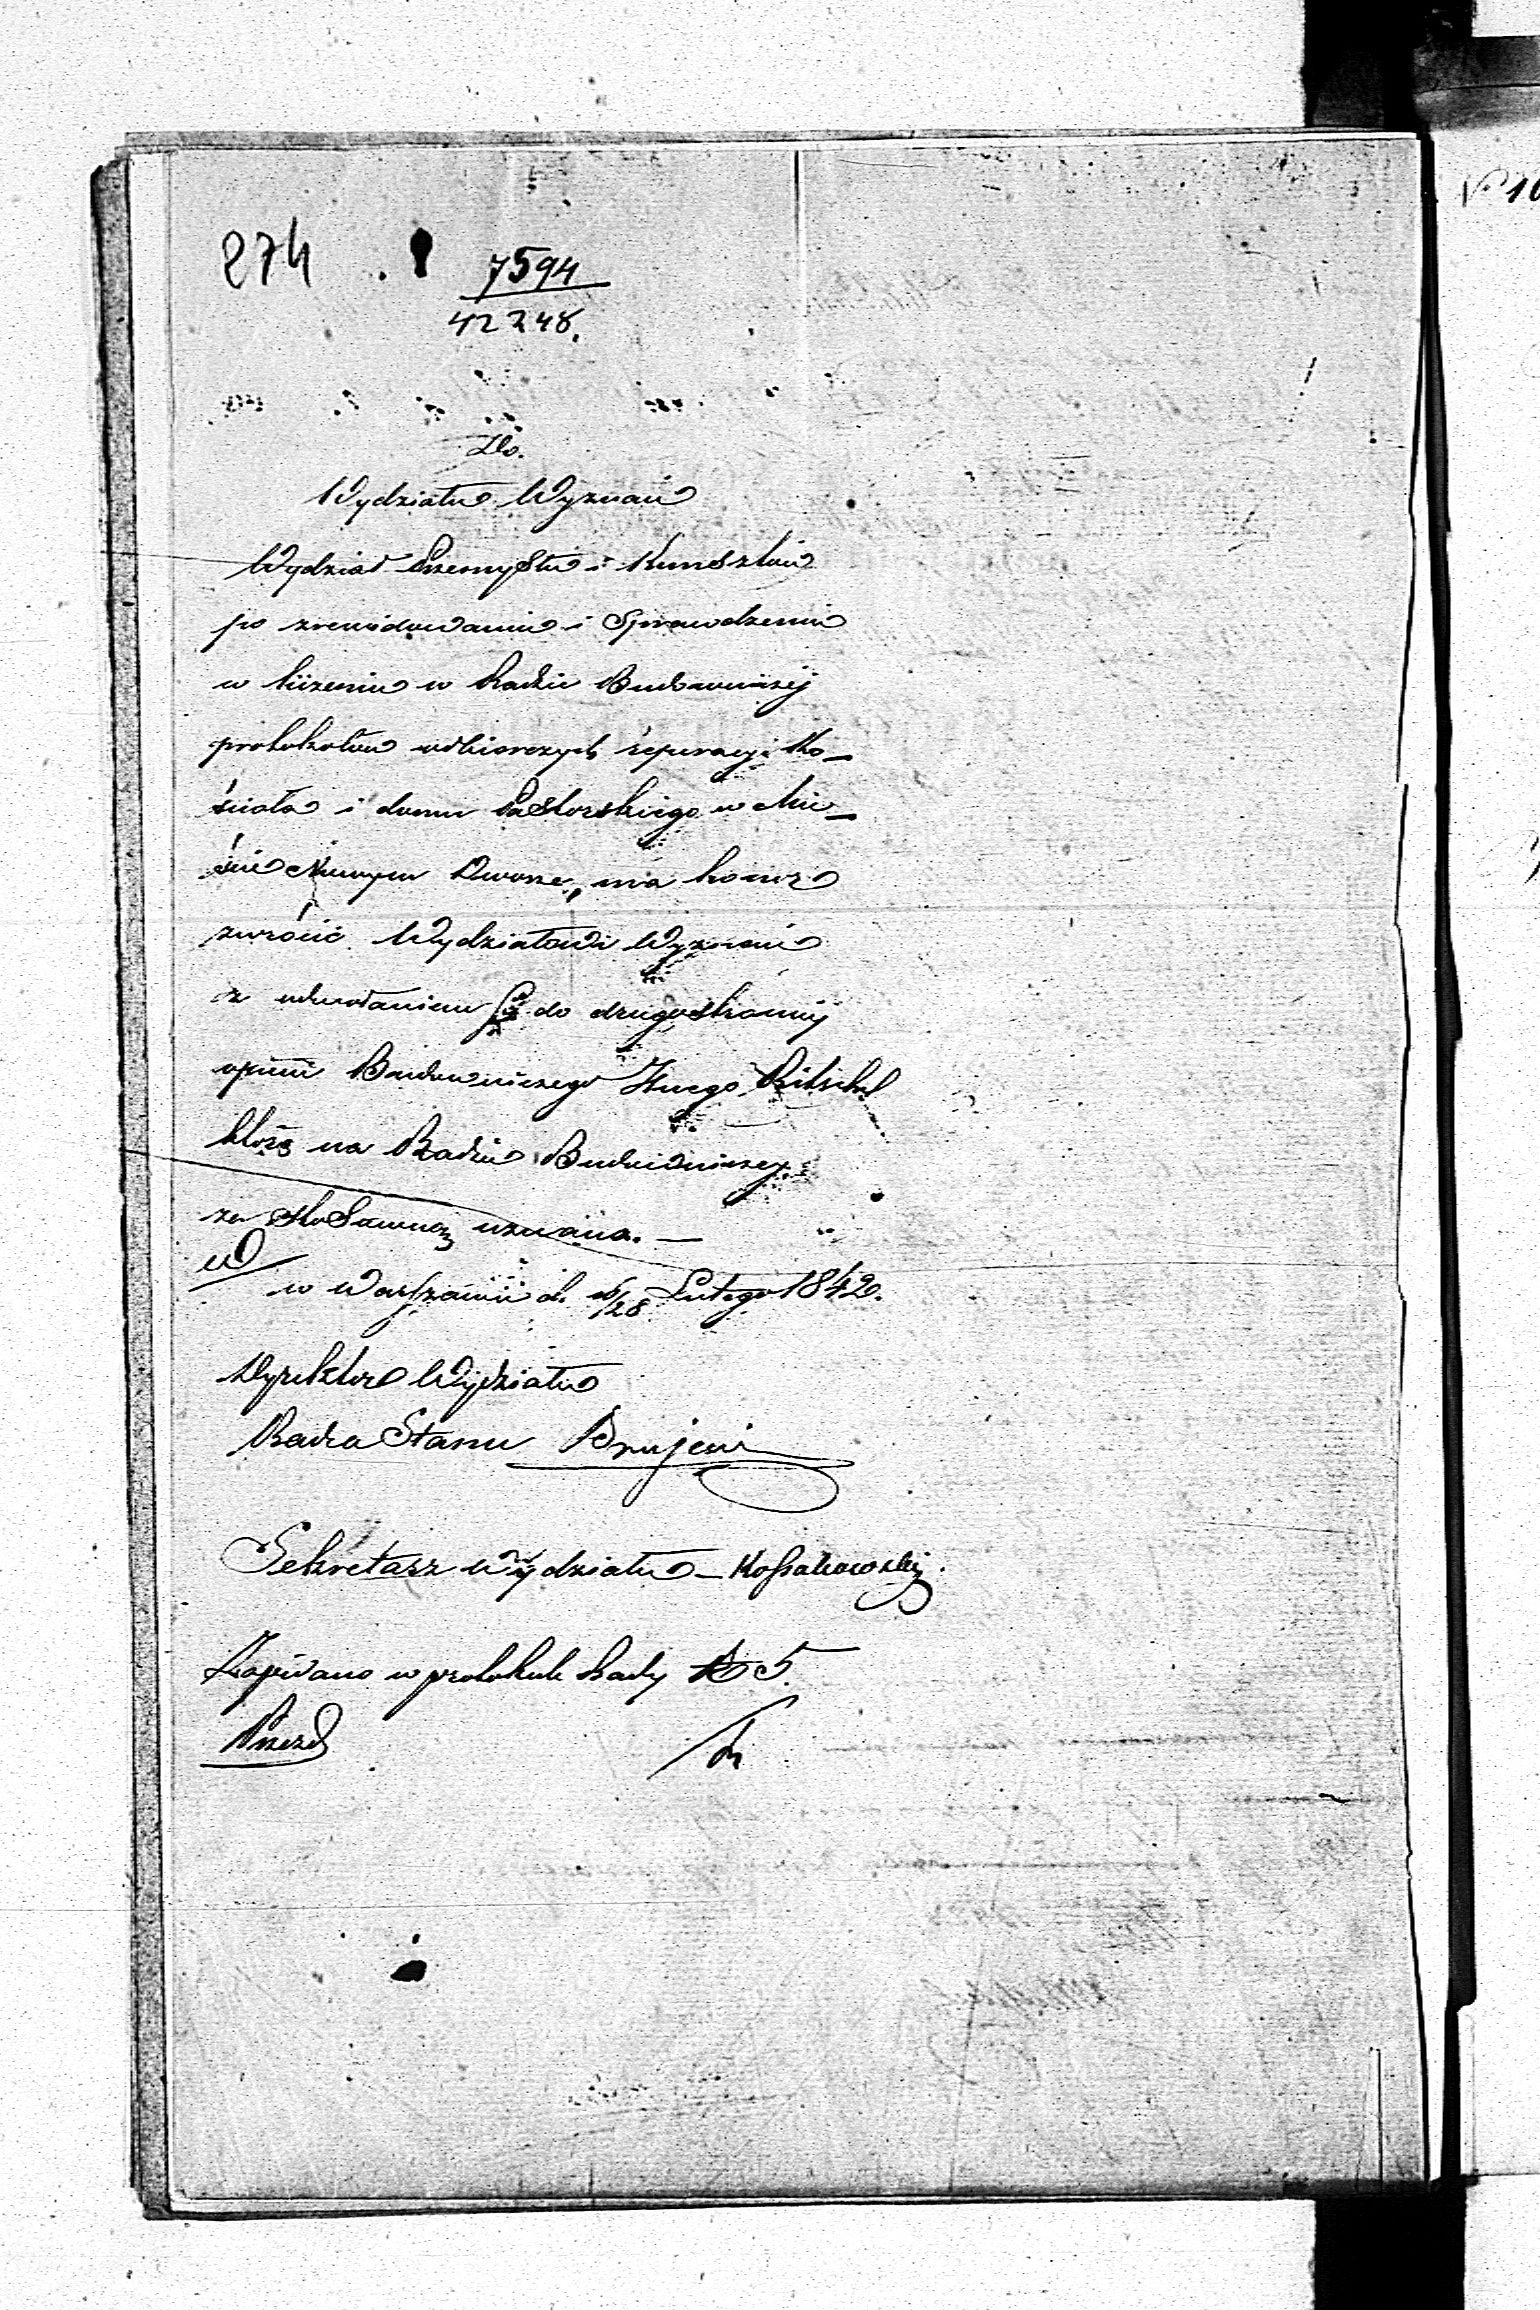 274
7594
42248.
Do.
Wydziału Wyznań
Wydział Przemysłu i Kunsztów
po zrewidowaniu i sprawdzeniu
w Radzie Budowniczej
protokołów odbiorczych reperacyi Ko-
ścioła i domu Pastorskiego w Mie-
ście Nowym Dworze, ma honor
zwrócić Wydziałowi Wyznań
z odwołaniem się do drugostronnej
opinii Budowniczego Ritschel
która na Radzie Budowniczej
za stosowną uznana. —
w Warszawie d. 16/28 Lutego 1842.
Dyrektor Wydziału
Radca Stanu
Sekretarz Wydziału – Kossakowski.
Zapisano w protokule Rady No 5.